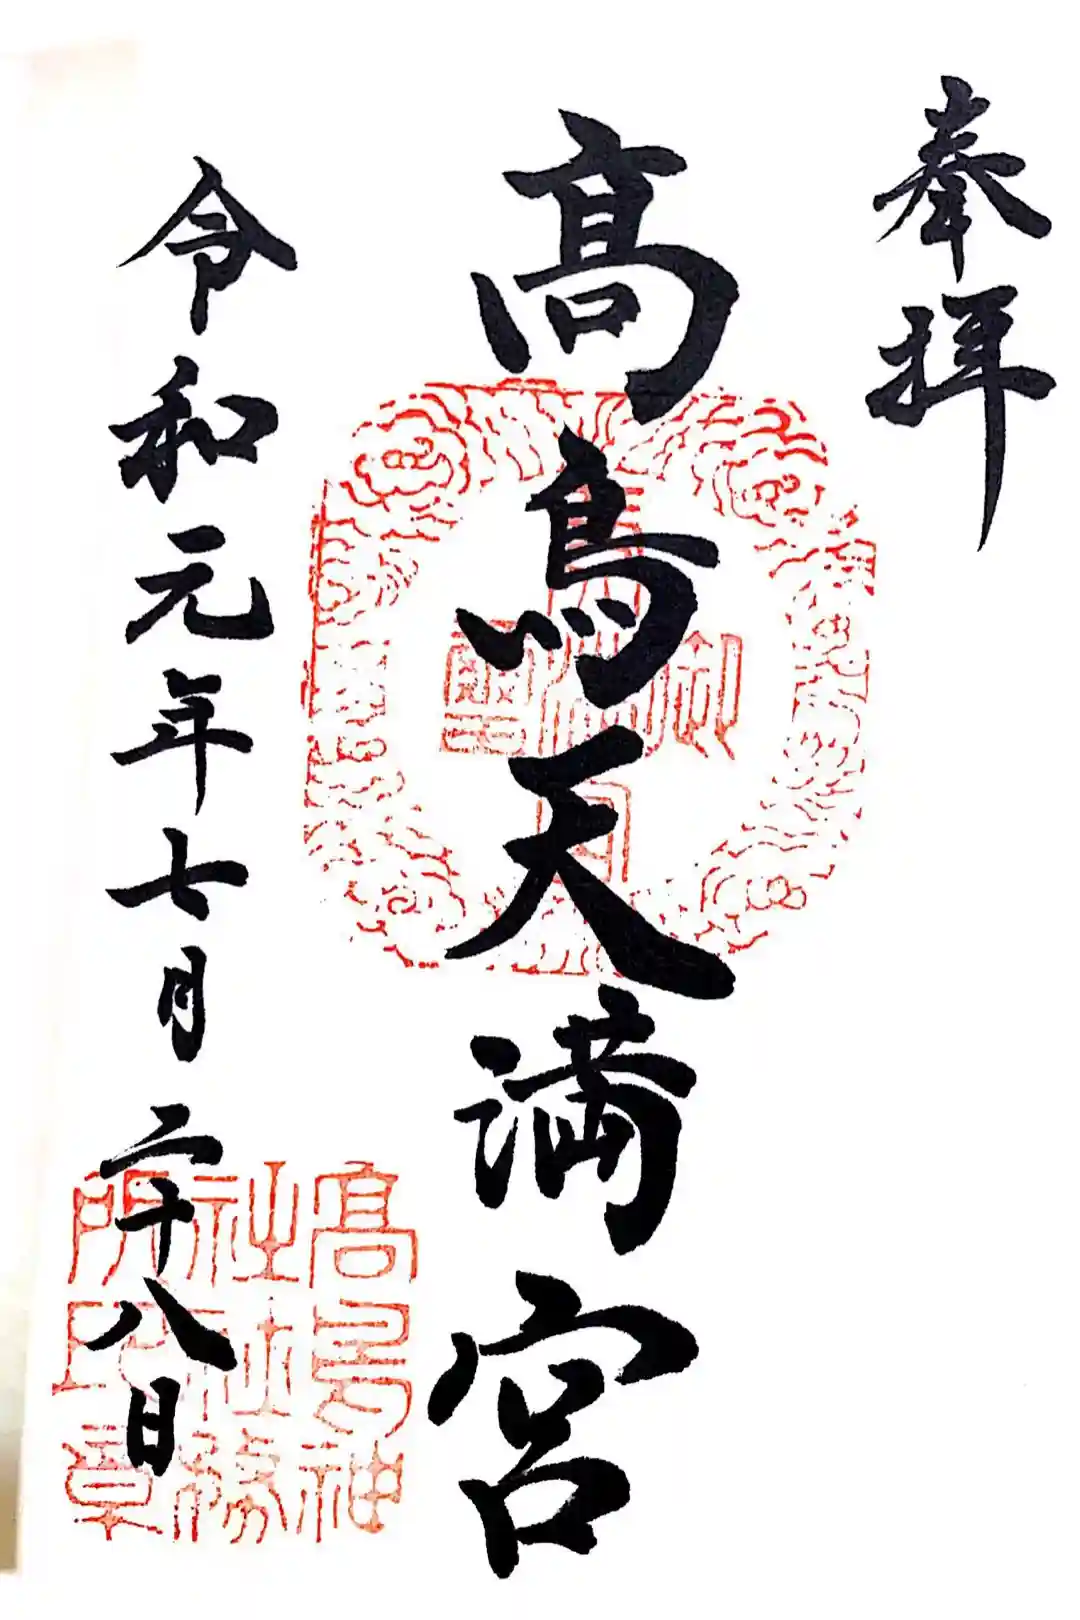 奉拝
髙鳥天満宮
令和元年七月二十八日
髙鳥神
社社務
所印章